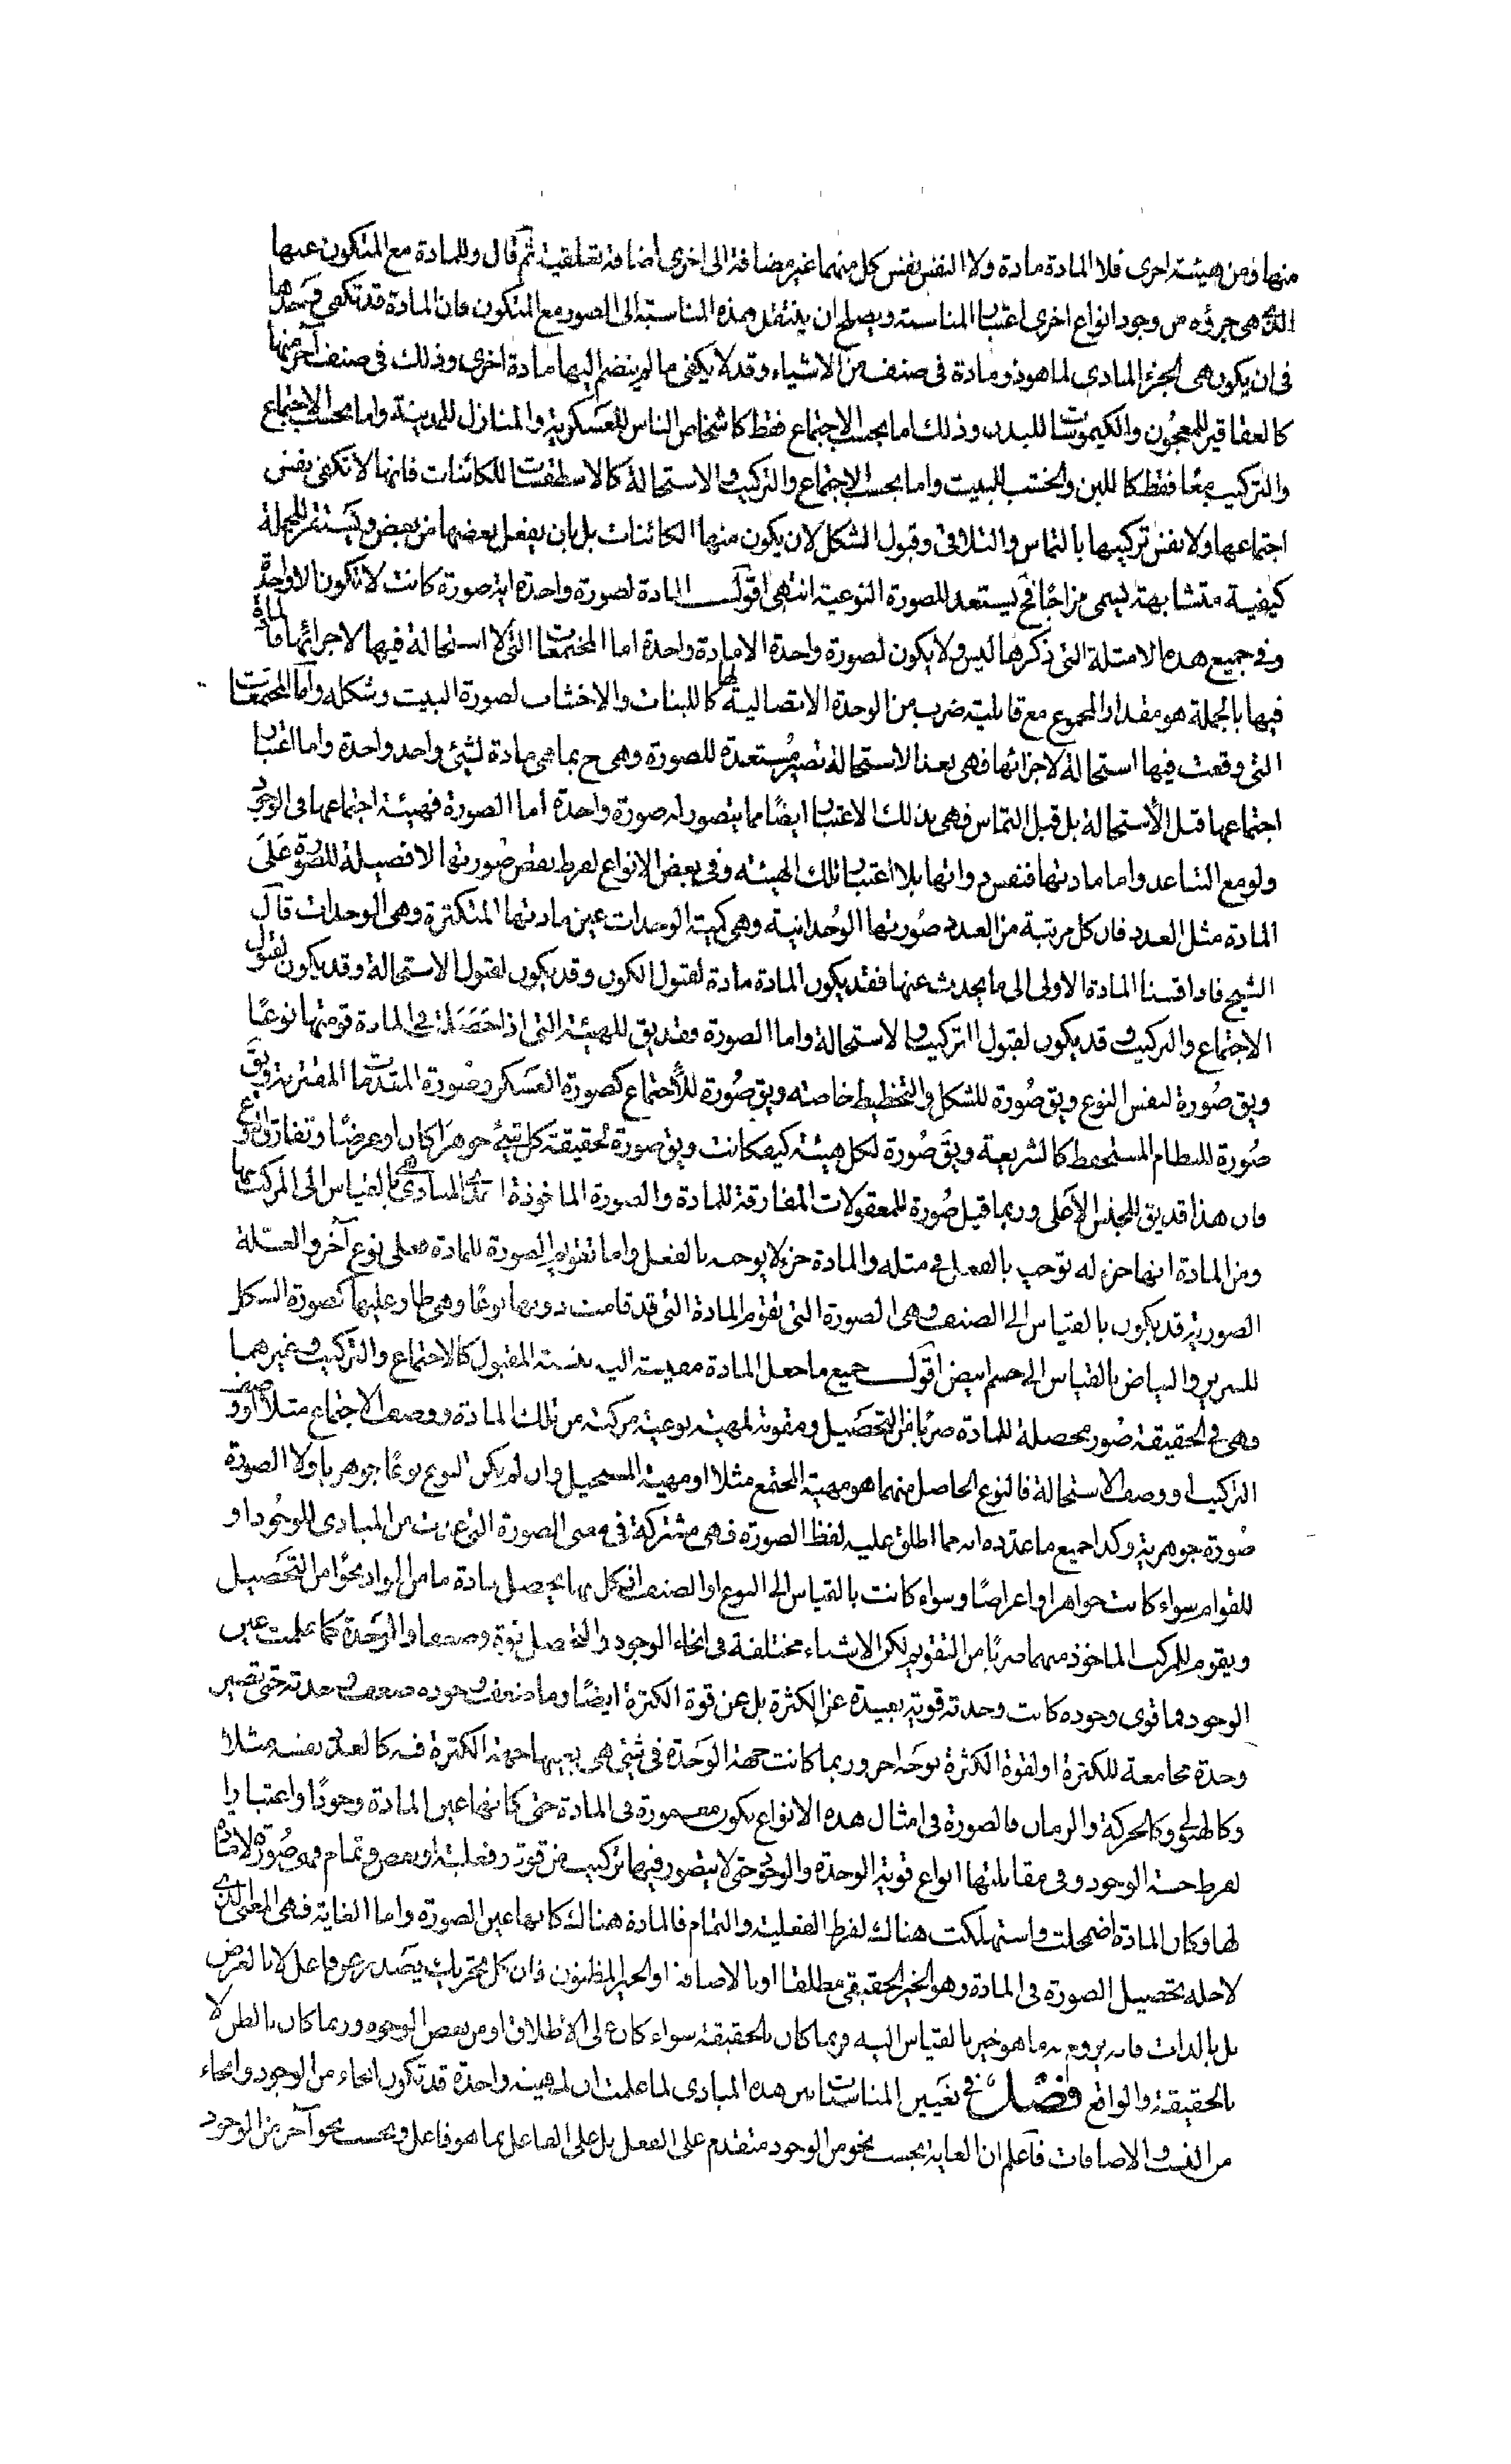 منها فمن هيئة اخرى فلا المادة مادة ولا النفس نفس كل منهما غير مضافة الى اخرى اضافة تعلقية ثم قال وللمادة مع المتكون عنها
التى هى جزؤه من وجود انواع اخرى اعتبار المناسبة ويصلح ان ينتقل بهذه المناسبة الى الصورة مع المتكون فان المادة قد تكفى وحدها
فى ان يكون هى الجزء المادى لما هو ذو مادة فى صنف من الاشياء وقد لا يكفى ما لم ينضم اليها مادة اخرى وذلك فى صنف آخر منها
كالعقاقير للمعجون والكيموسات للبدن وذلك اما بحسب الاجتماع فقط كاشخاص الناس للعسكرية والمنازل للمدينة واما بحسب الاجتماع
والتركيب معًا فقط كاللبن والخشب للبيت واما بحسب الاجتماع والتركيب والاستحالة كالاسطقسات للكائنات فانها لا تكفى نفس
اجتماعها ولا نفس تركيبها بالتماس والتلاقى وقبول الشكل لان يكون منها الكائنات بل بان يفعل بعضها من بعض ويستقر للجملة
كيفية متشابهة تسمى مزاجًا فح يستعد للصورة النوعية انتهى اقول المادة لصورة واحدة اية صورة كانت لا تكون الا واحدة
وفى جميع هذه الامثلة التى ذكرها ليس ولا يكون لصورة واحدة الا مادة واحدة اما المجتمعات التى لا استحالة فيها لاجزائها فالمادة
فيها بالجملة هو مقدار المجموع مع قابلية ضرب من الوحدة الاتصالية لها كاللبنات والاخشاب لصورة البيت وشكله واما المجتمعات
التى وقعت فيها استحالة لاجزائها فهى بعد الاستحالة تصير مستعدة للصورة وهى ح بما هى مادة لشيئ واحد واحدة واما اعتبار
اجتماعها قبل الاستحالة بل قبل التماس فهى بذلك الاعتبار ايضًا مما يتصور له صورة واحدة اما الصورة فهيئة اجتماعها فى الوجود
ولو مع التباعد واما مادتها فنفس ذواتها بلا اعتبار تلك الهيئة وفى بعض الانواع لفرط نقص صورتها لا فضيلة للصورة على
المادة مثل العدد فان كل مرتبة من العدد صورتها الوحدانية وهى كمية الوحدات عين مادتها المتكثرة وهى الوحدات قال
الشيخ فاذا قسنا المادة الاولى الى ما يحدث عنها فقد يكون المادة مادة لقبول الكون وقد يكون لقبول الاستحالة وقد يكون لقبول
الاجتماع والتركيب وقد يكون لقبول التركيب والاستحالة واما الصورة فقد يق للهيئة التى اذا حصلت فى المادة قومتها نوعًا
ويق صورة لنفس النوع ويق صورة للشكل والتخطيط خاصة ويق صورة للاجتماع كصورة العسكر وصورة المقدمات المقترنة ويق
صورة للنظام المستحفظ كالشريعة ويق صورة لكل هيئة كيف كانت ويق صورة لحقيقة كل شيئ جوهرا كان او عرضًا وتفارق النوع
فان هذا قد يق للجنس الاعلى وربما قيل صورة للمعقولات المفارقة للمادة والصورة الماخوذة احدى المبادى هى بالقياس الى المركب منها
ومن المادة انها جزء له توجبه بالفعل فى مثله والمادة جزء لا يوجبه بالفعل واما تقويم الصورة للمادة فعلى نوع آخر والعلة
الصورية قد يكون بالقياس الى الصنف وهى الصورة التى تقوم المادة التى قد قامت دونها نوعًا وهى طار عليها كصورة الشكل
للسرير والبياض بالقياس الى جسم ابيض اقول جميع ما جعل المادة مقيسة اليه نسبة المقبول كالاجتماع والتركيب وغيرهما
وهى فى الحقيقة صور محصلة للمادة ضربًا من التحصيل ومقومة لمهية نوعية مركبة من تلك المادة ووصف الاجتماع مثلا او وصف
التركيب او وصف الاستحالة فالنوع الحاصل منهما هو مهية المجتمع مثلا او مهية المستحيل وان لم يكن النوع نوعًا جوهريا ولا الصورة
صورة جوهرية وكذا جميع ما عدده مما اطلق عليه لفظ الصورة فهى مشتركة فى معنى الصورة التى عدت من المبادى للوجود او
للقوام سواء كانت جواهر او اعراضًا وسواء كانت بالقياس الى النوع او الصنف فان كل منها يحصل مادة ما من المواد نحوًا من التحصيل
ويقوم للمركب الماخوذ منهما ضربًا من التقويم لكن الاشياء مختلفة فى انحاء الوجود والتحصل قوة وضعفا والوحدة كما علمت عين
الوجود فما قوى وجوده كانت وحدته قوية بعيدة عن الكثرة بل عن قوة الكثرة ايضًا وما ضعف وجوده ضعف وحدته حتى تصير
وحدة مجامعة للكثرة او لقوة الكثرة بوجه آخر وربما كانت جهة الوحدة فى شيئ هى بعينها جهة الكثرة فيه كالعدد نفسه مثلا
وكالهيولى وكالحركة والزمان فالصورة فى امثال هذه الانواع يكون مغمورة فى المادة حتى كانها عين المادة وجودًا واعتبارا
لفرط خسة الوجود وفى مقابلتها انواع قوية الوحدة والوجود حتى لا يتصور فيها تركيب من قوة وفعلية او نقص وتمام فهو صورة لا مادة
لها وكان المادة اضمحلت واستهلكت هناك لفرط الفعلية والتمام فالمادة هناك كانها عين الصورة واما الغاية فهى المعنى الذى
لاجله تحصيل الصورة فى المادة وهو الخير الحقيقى مطلقا او بالاضافة او الخير المظنون فان كل تحريك يصدر عن فاعل لا بالعرض
بل بالذات فانه يروم به ما هو خير بالقياس اليه فربما كان بالحقيقة سواء كان على الاطلاق او من بعض الوجوه وربما كان بالظن لا
بالحقيقة والواقع فصل فى تعيين المناسبات بين هذه المبادى لما علمت ان لمهية واحدة قد تكون انحاء من الوجود وانحاء
من النسب والاضافات فاعلم ان الغاية بحسب نحو من الوجود متقدم على الفعل بل على الفاعل بما هو فاعل وبحسب نحو آخر من الوجود